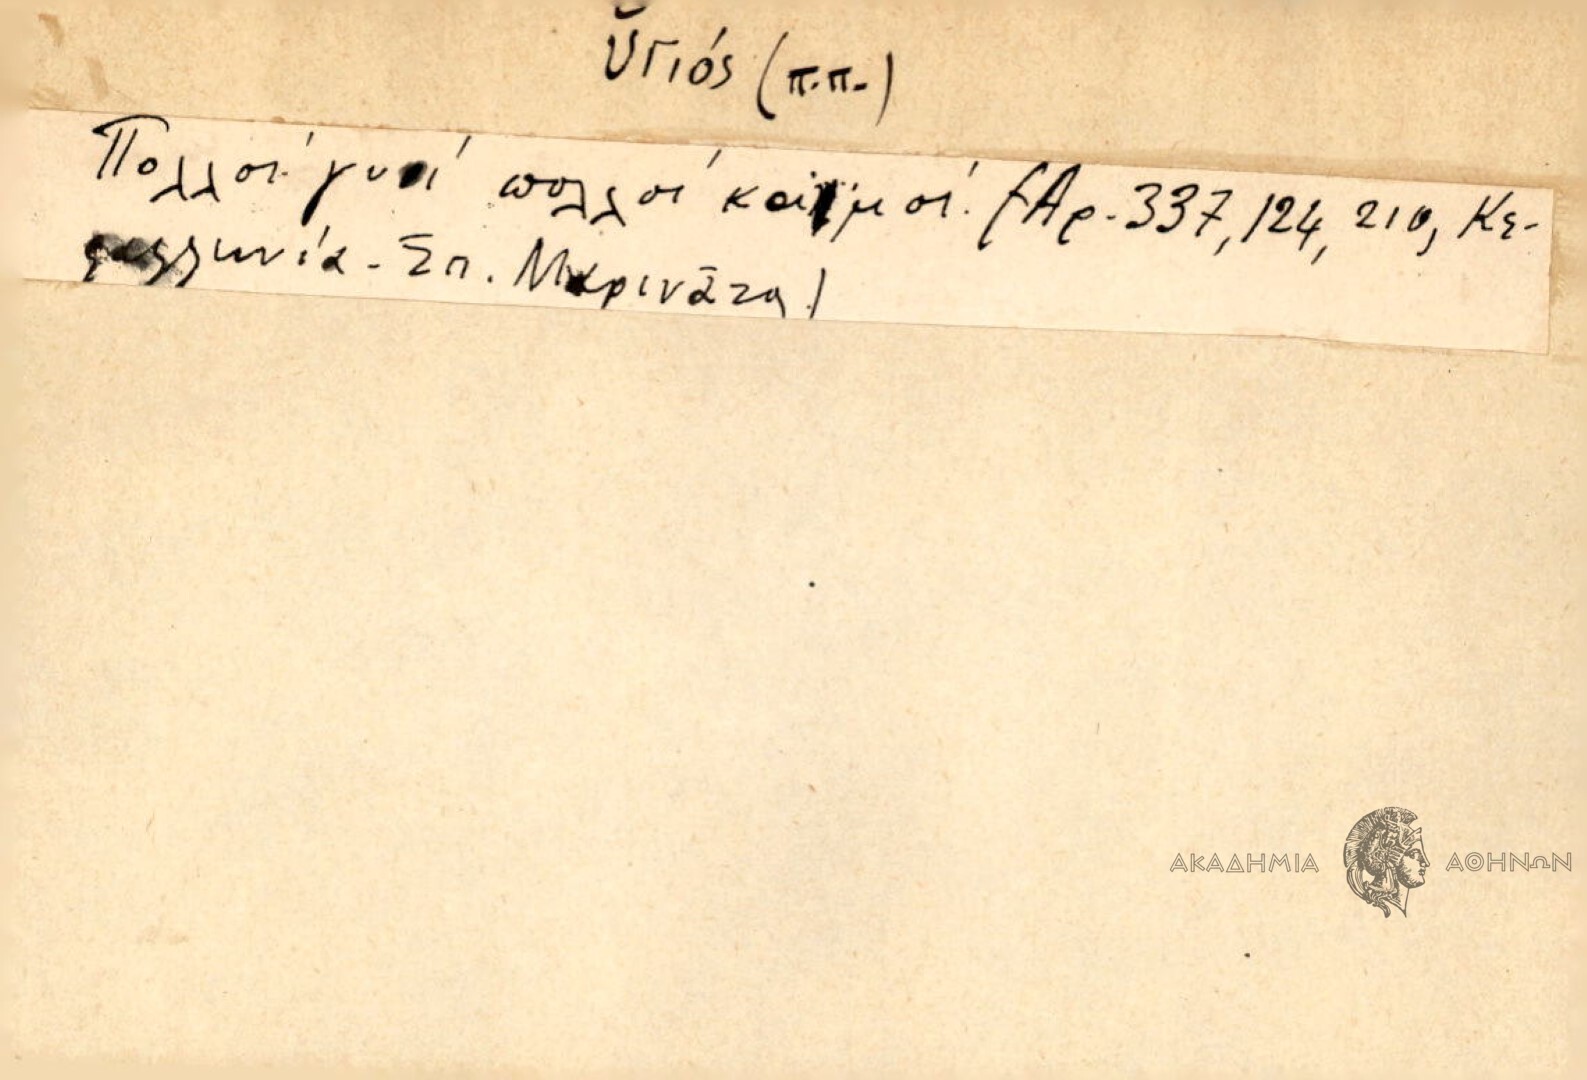 Ὑγιός (π.π.)
Πολλοί γυιοί πολλοί καϊμοί. (Αρ. 337, 124, 210, Κε-
φαλληνία - Σπ. Μαρινᾶτο)
ΑΚΑΔΗΜΙΑ ΑΘΗΝΩΝ